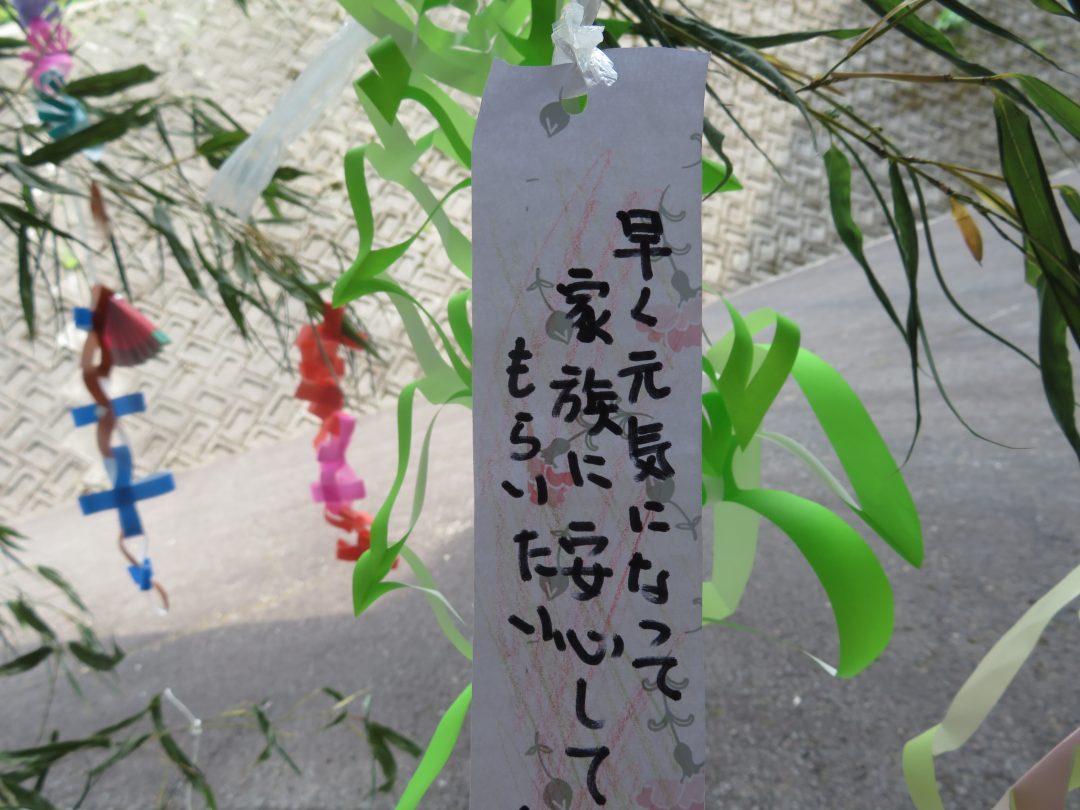 早く元気になって
家族に安心して
もらいたい